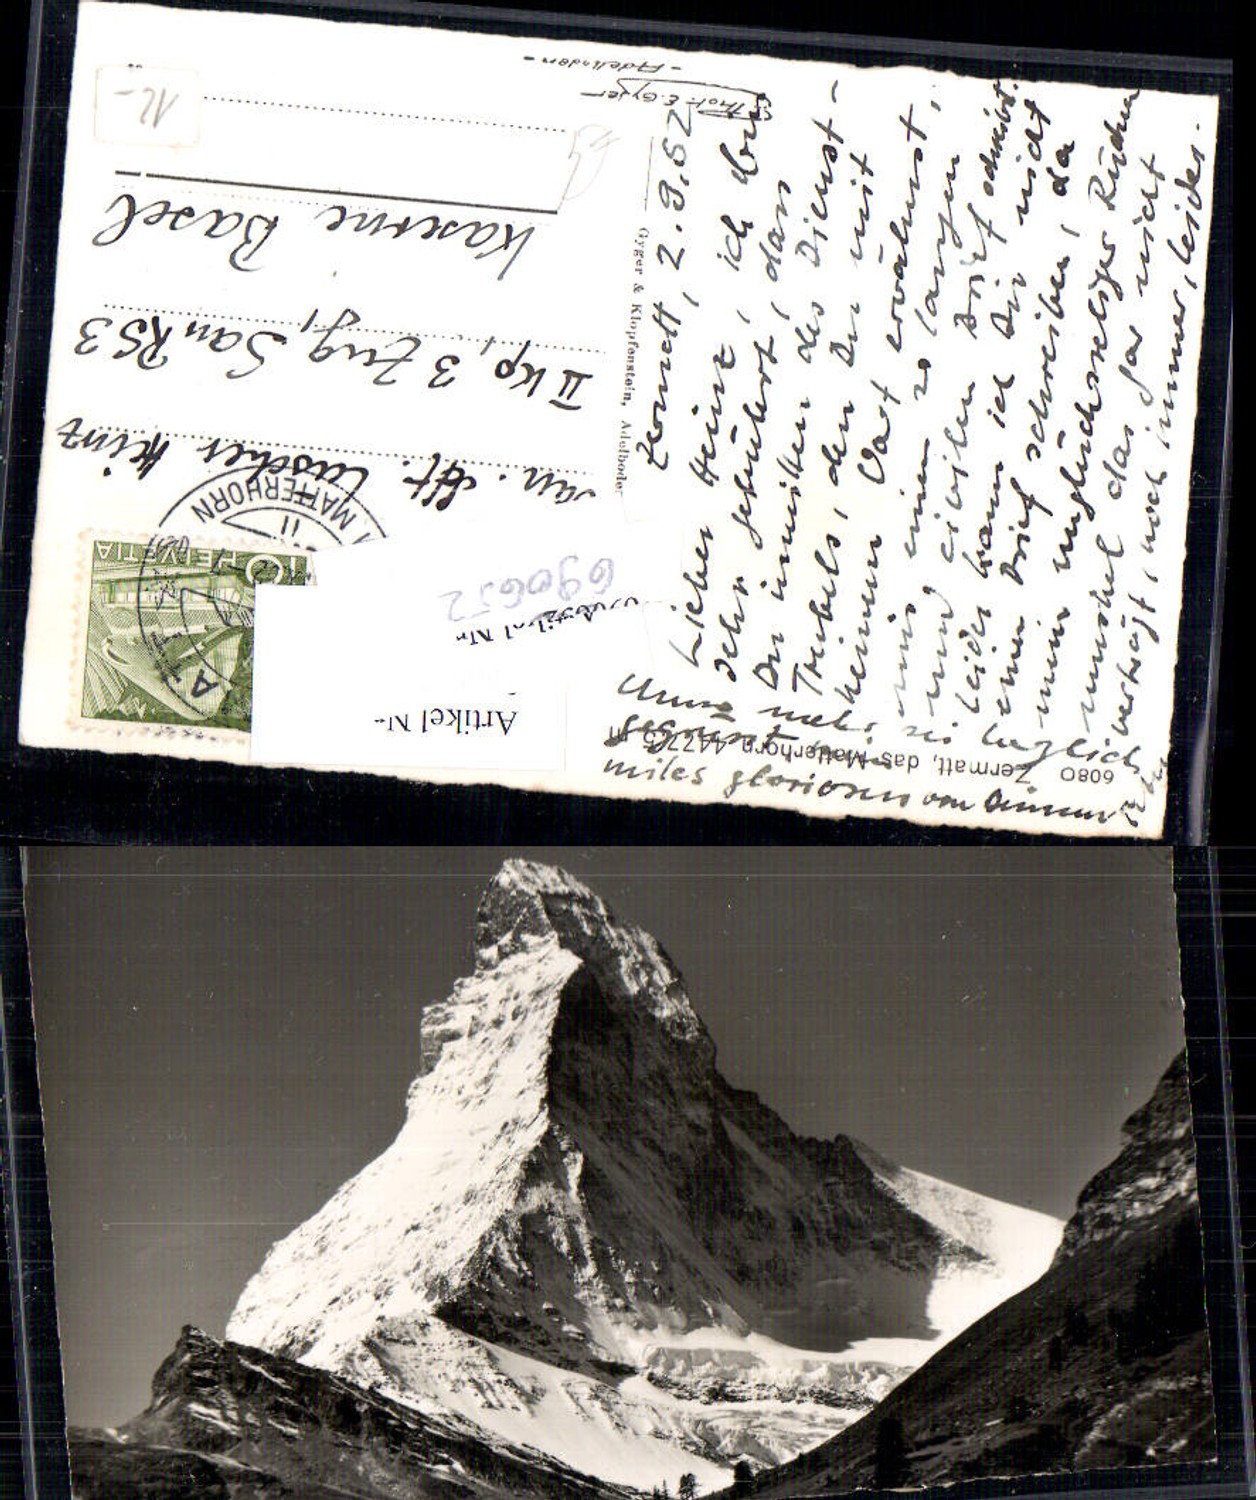 Zermatt, 2. 9. 52
Lieber Heinz, ich bin
sehr gerührt, dass
Du inmitten des Dienst-
Trubels, den Du mit
keinem Wort erwähnst,
mir einen so langen
und zivilen Brief schreibst.
Leider kann ich Dir nicht
einen Brief schreiben, da
mein unglückseliger Rücken
das gar nicht
verträgt, noch immer, leider.
miles gloriosus von Deiner
6080 Zermatt, das Matterhorn 4477,5 m
Gyger & Klopfenstein, Adelboden
Phot. E. Gyger
- Adelboden -
San. Heinz
II Kp, 3 Zug, San RS 3
Kaserne Basel
MATTERHORN
HELVETIA
10
12-
690652
Artikel Nr.
Artikel Nr.